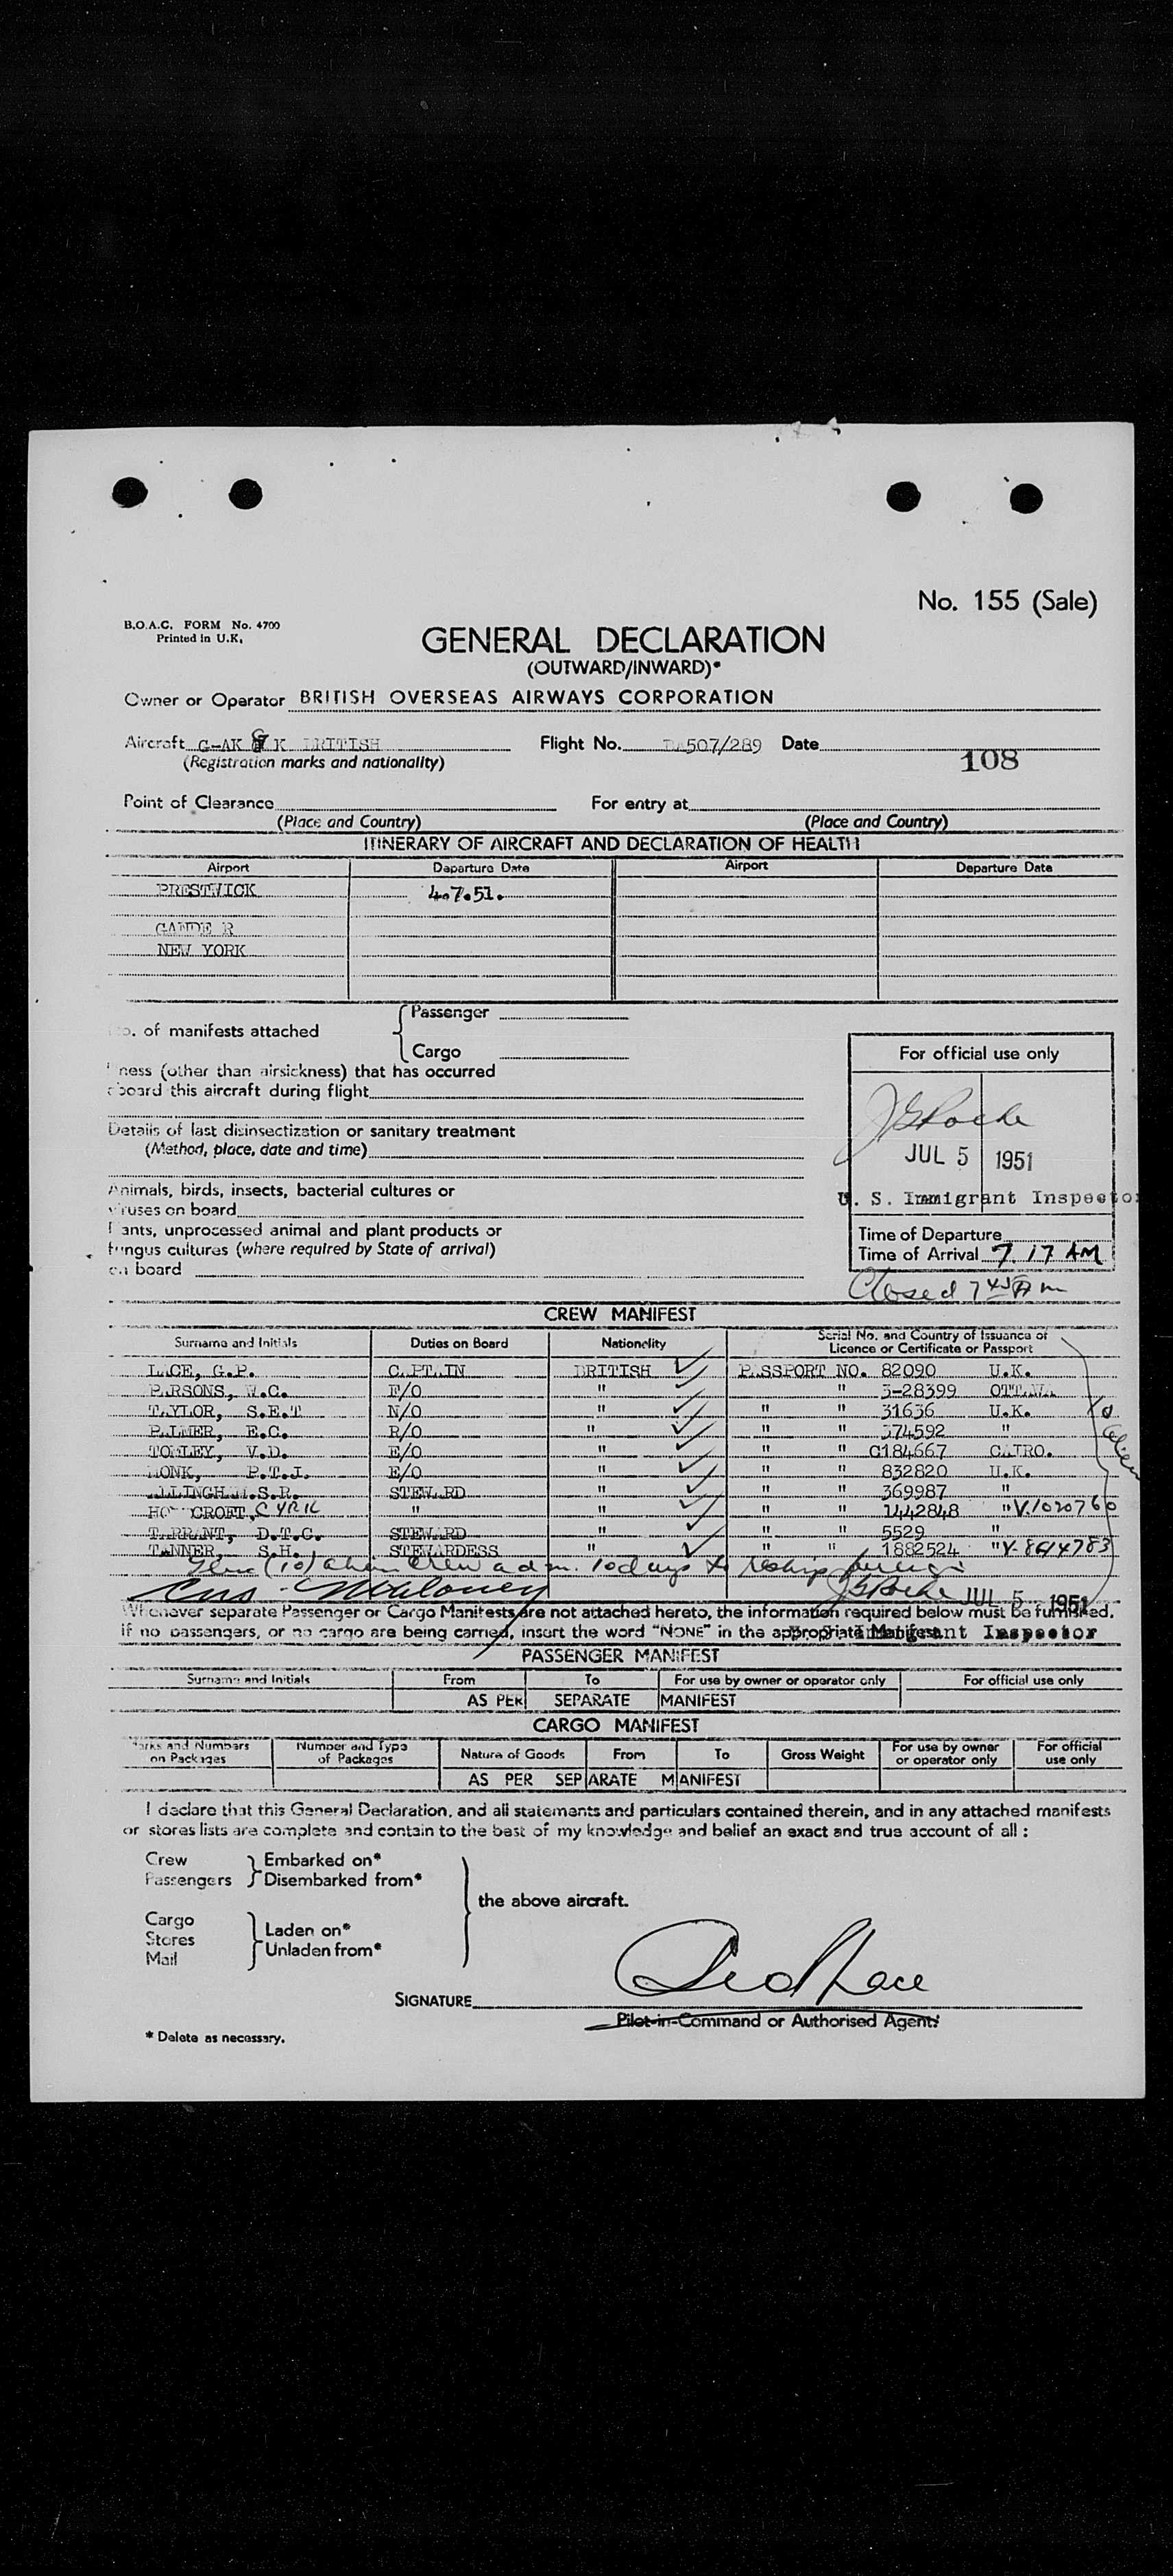 No. 155 (Sale)
B.O.A.C. FORM No. 4700
Printed in U.K.
GENERAL DECLARATION
(OUTWARD/INWARD)*
Owner or Operator BRITISH OVERSEAS AIRWAYS CORPORATION
Aircraft G-AK G K BRITISH Flight No. BA507/289 Date
(Registration marks and nationality) 108
Point of Clearance For entry at
(Place and Country) (Place and Country)
ITINERARY OF AIRCRAFT AND DECLARATION OF HEALTH
Airport Departure Date Airport Departure Date
PRESTWICK 4.7.51.
GANDE R
NEW YORK
o. of manifests attached Passenger
Cargo
ness (other than airsickness) that has occurred
board this aircraft during flight
Details of last disinsectization or sanitary treatment
(Method, place, date and time)
Animals, birds, insects, bacterial cultures or
viruses on board
Plants, unprocessed animal and plant products or
fungus cultures (where required by State of arrival)
on board
For official use only
J G Roche
JUL 5 1951
U. S. Immigrant Inspector
Time of Departure
Time of Arrival 7.17 AM
Closed 7 45 A m
CREW MANIFEST
Surname and Initials Duties on Board Nationality Serial No. and Country of Issuance of Licence or Certificate or Passport
LACE, G.P. CAPTAIN BRITISH PASSPORT NO. 82090 U.K.
PARSONS, W.C. F/O " " 3-28399 OTTAWA
TAYLOR, S.E.T N/O " " " 31636 U.K.
PALMER, E.C. R/O " " " 374592 "
TOMLEY, V.D. E/O " " " C184667 CAIRO.
MONK, P.T.J. E/O " " " 832820 U.K.
ALLINGHAM.S.R. STEWARD " " " 369987 "
CROFT, CYRIL " " " " 1442848 " V.1020760
TARRANT, D.T.C. STEWARD " " " 5529 "
TANNER, S.H. STEWARDESS " " " 1882524 " V-8614783
(10) alien crew adm. 10 days to reship foreign
Maloney J G Roche JUL 5 1951
Whenever separate Passenger or Cargo Manifests are not attached hereto, the information required below must be furnished.
if no passengers, or no cargo are being carried, insert the word "NONE" in the appropriate Manifest.
Immigrant Inspector
PASSENGER MANIFEST
Surname and Initials From To For use by owner or operator only For official use only
AS PER SEPARATE MANIFEST
CARGO MANIFEST
Marks and Numbers on Packages Number and Type of Packages Nature of Goods From To Gross Weight For use by owner or operator only For official use only
AS PER SEPARATE MANIFEST
I declare that this General Declaration, and all statements and particulars contained therein, and in any attached manifests
or stores lists are complete and contain to the best of my knowledge and belief an exact and true account of all :
Crew Embarked on*
Passengers Disembarked from*
the above aircraft.
Cargo
Stores Laden on*
Mail Unladen from*
SIGNATURE
Pilot-in-Command or Authorised Agent*
* Delete as necessary.